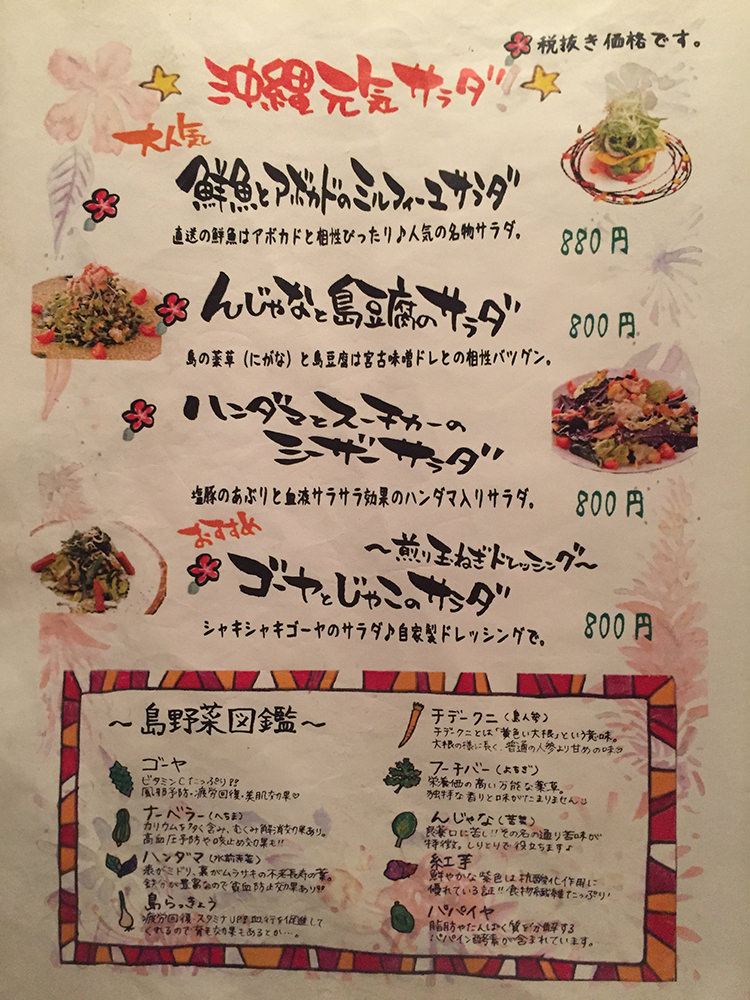 税抜き価格です。
沖縄元気サラダ
大人気
鮮魚とアボカドのミルフィーユサラダ
直送の鮮魚はアボカドと相性ぴったり♪人気の名物サラダ。
880円
んじゃなと島豆腐のサラダ
800円
島の薬草（にがな）と島豆腐は宮古味噌ドレとの相性バツグン。
ハンダマとスーチカーの
シーザーサラダ
塩豚のあぶりと血液サラサラ効果のハンダマ入りサラダ。
800円
おすすめ
～煎り玉ねぎドレッシング～
ゴーヤとじゃこのサラダ
シャキシャキゴーヤのサラダ♪自家製ドレッシングで。
800円
～島野菜図鑑～
ゴーヤ
ビタミンCたっぷり!!
風邪予防・疲労回復・美肌効果♡
ナーベラー（へちま）
カリウムを多く含み、むくみ解消効果あり。
高血圧予防や咳止め効果も!!
ハンダマ（水前寺菜）
表がミドリ、裏がムラサキの不老長寿の葉。
鉄分が豊富なので貧血防止効果あり!!
島らっきょう
疲労回復・スタミナUP!!血行を促進して
くれるので育毛効果もあるとか…。
チデークニ（島人参）
チデークニとは「黄色い大根」という意味。
大根の様に長く、普通の人参より甘めの味
フーチバー（よもぎ）
栄養価の高い万能な薬草。
独特な香りと味がたまりません
んじゃな（苦菜）
良薬口に苦し!!その名の通り苦味が
特徴。しりとりで役立ちます♪
紅芋
鮮やかな紫色は抗酸化作用に
優れている証!!食物繊維たっぷり♪
パパイヤ
脂肪やたんぱく質を分解する
パパイン酵素が含まれています。